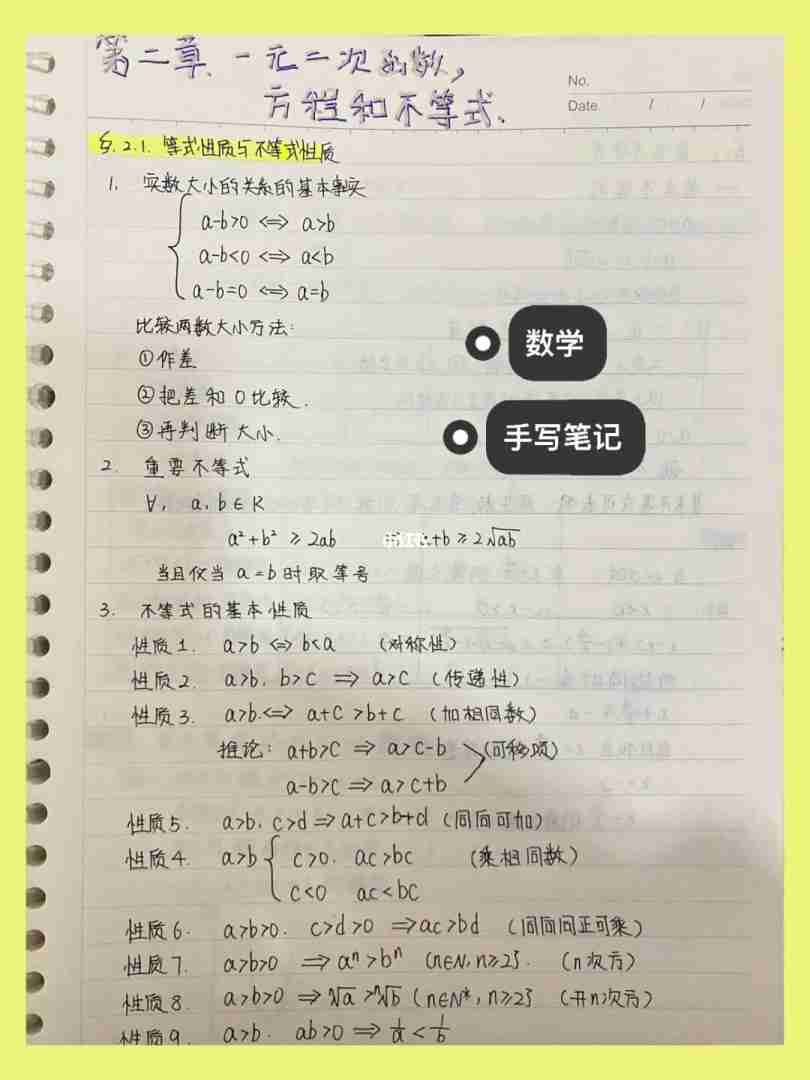 第二章、一元二次函数，
方程和不等式、
No.
Date. / /
§.2.1. 等式性质与不等式性质
1. 实数大小的关系的基本事实
a-b>0 ⟺ a>b
a-b<0 ⟺ a<b
a-b=0 ⟺ a=b
比较两数大小方法:
①作差
②把差和0比较.
③再判断大小.
数学
手写笔记
2. 重要不等式
∀, a,b∈R
a²+b² ≥ 2ab a+b ≥ 2√ab
当且仅当 a=b 时取等号
3. 不等式的基本性质
性质1. a>b ⟺ b<a (对称性)
性质2. a>b, b>c ⟹ a>c (传递性)
性质3. a>b. ⟺ a+c>b+c (加相同数)
推论: a+b>c ⟹ a>c-b (可移项)
a-b>c ⟹ a>c+b
性质5. a>b, c>d ⟹ a+c>b+d (同向可加)
性质4. a>b { c>0. ac>bc (乘相同数)
c<0 ac<bc
性质6. a>b>0. c>d>0 ⟹ ac>bd (同向同正可乘)
性质7. a>b>0 ⟹ aⁿ>bⁿ (n∈N, n≥2}. (n次方)
性质8. a>b>0 ⟹ ⁿ√a>ⁿ√b (n∈N*, n≥2} (开n次方)
性质9. a>b. ab>0 ⟹ 1/a < 1/b